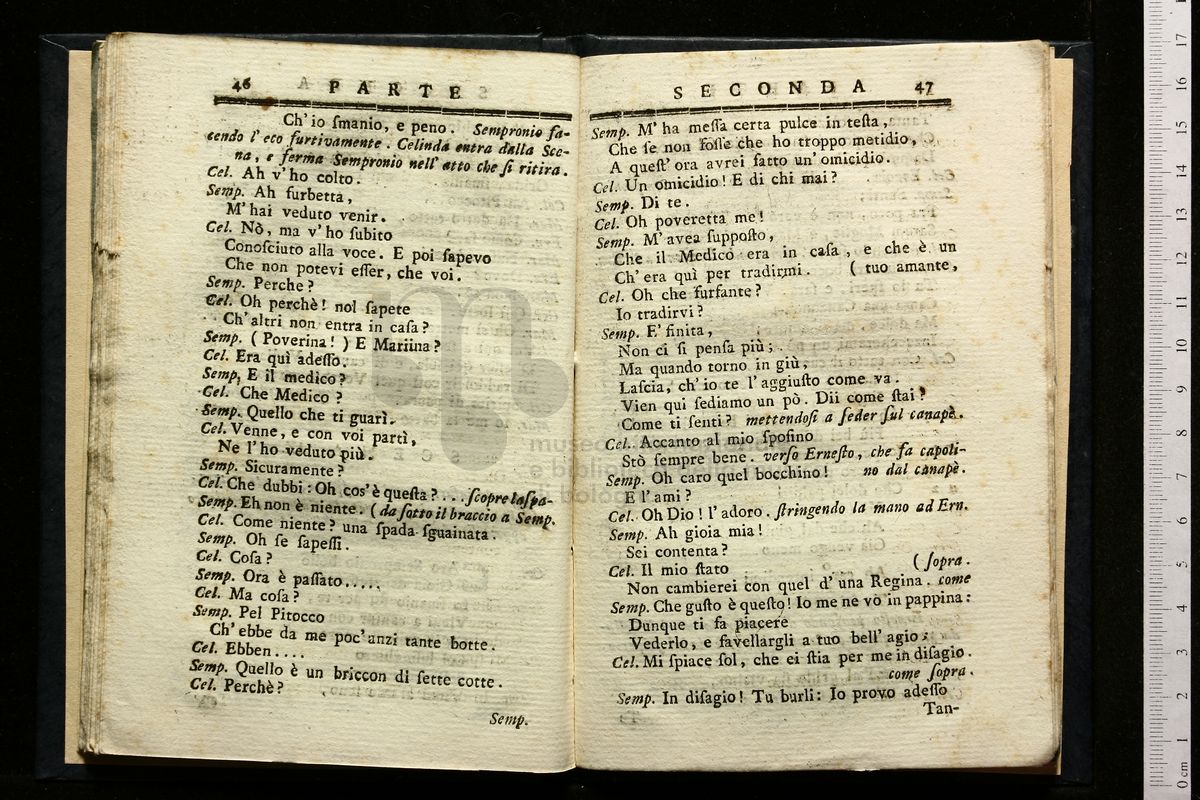 46 PARTE
Ch' io ſmanio, e peno. Sempronio fa-
cendo l' eco furtivamente. Celinda entra dalla Sce-
na, e ferma Sempronio nell' atto che ſi ritira.
Cel. Ah v' ho colto.
Semp. Ah furbetta,
M' hai veduto venir.
Cel. Nò, ma v' ho ſubito
Conoſciuto alla voce. E poi ſapevo
Che non potevi eſſer, che voi.
Semp. Perche?
Cel. Oh perchè! nol ſapete
Ch' altri non entra in caſa?
Semp. ( Poverina! ) E Mariina?
Cel. Era quì adeſſo.
Semp. E il medico?
Cel. Che Medico?
Semp. Quello che ti guarì.
Cel. Venne, e con voi partì,
Ne l' ho veduto più.
Semp. Sicuramente?
Cel. Che dubbi: Oh cos' è queſta? ... ſcopre la ſpa-
Semp. Eh non è niente. (da ſotto il braccio a Semp.
Cel. Come niente? una ſpada ſguainata.
Semp. Oh ſe ſapeſſi.
Cel. Coſa?
Semp. Ora è paſſato.....
Cel. Ma coſa?
Semp. Pel Pitocco
Ch' ebbe da me poc' anzi tante botte.
Cel. Ebben....
Semp. Quello è un briccon di ſette cotte.
Cel. Perchè?
Semp.
SECONDA 47
Semp. M' ha meſſa certa pulce in teſta,
Che ſe non foſſe che ho troppo metidio,
A queſt' ora avrei fatto un' omicidio.
Cel. Un omicidio! E di chi mai?
Semp. Di te.
Cel. Oh poveretta me!
Semp. M' avea ſuppoſto,
Che il Medico era in caſa, e che è un
Ch' era quì per tradirmi. ( tuo amante,
Cel. Oh che furfante?
Io tradirvi?
Semp. E' finita,
Non ci ſi penſa più;
Ma quando torno in giù,
Laſcia, ch' io te l' aggiuſto come va.
Vien qui ſediamo un pò. Dii come ſtai?
Come ti ſenti? mettendoſi a ſeder ſul canapè.
Cel. Accanto al mio ſpoſino
Stò ſempre bene. verſo Erneſto, che fa capoli-
Semp. Oh caro quel bocchino! no dal canapè.
E l' ami?
Cel. Oh Dio! l' adoro. ſtringendo la mano ad Ern.
Semp. Ah gioia mia!
Sei contenta?
Cel. Il mio ſtato ( ſopra.
Non cambierei con quel d' una Regina. come
Semp. Che guſto è queſto! Io me ne vò in pappina:
Dunque ti fa piacere
Vederlo, e favellargli a tuo bell' agio:
Cel. Mi ſpiace ſol, che ei ſtia per me in diſagio.
come ſopra.
Semp. In diſagio! Tu burli: Io provo adeſſo
Tan-